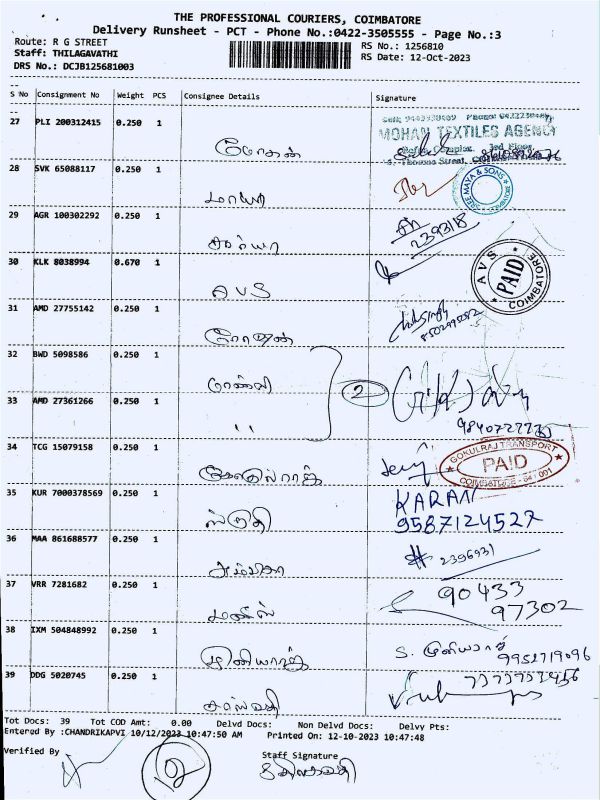 THE PROFESSIONAL COURIERS, COIMBATORE
Delivery Runsheet - PCT - Phone No.:0422-3505555 - Page No.:3
Route: R G STREET
RS No.: 1256810
Staff: THILAGAVATHI
RS Date: 12-Oct-2023
DRS No.: DCJB125681003
S No Consignment No Weight PCS Consignee Details Signature
27 PLI 200312415 0.250 1 மோகன்
MOHAN TEXTILES AGENCY
28 SVK 65088117 0.250 1 மாயா
SREE MAYA & SONS COIMBATORE
29 AGR 100302292 0.250 1 சூர்யா
2393118
30 KLK 8038994 0.670 1 AVS
AVS PAID COIMBATORE
31 AMD 27755142 0.250 1
32 BWD 5098586 0.250 1
2
33 AMD 27361266 0.250 1 "
34 TCG 15079158 0.250 1
GOKULRAJ TRANSPORT PAID COIMBATORE - 641 001
35 KUR 7000378569 0.250 1 ஸ்ருதி
KARAN
9587124527
36 MAA 861688577 0.250 1
2396931
37 VRR 7281682 0.250 1
90433
97302
38 IXM 504848992 0.250 1 முனியராஜ்
S. முனியராஜ்
39 DDG 5020745 0.250 1 சரஸ்வதி
Tot Docs: 39 Tot COD Amt: 0.00 Delvd Docs: Non Delvd Docs: Delvy Pts:
Entered By :CHANDRIKAPVI 10/12/2023 10:47:50 AM Printed On: 12-10-2023 10:47:48
Verified By
Staff Signature
திலகவதி